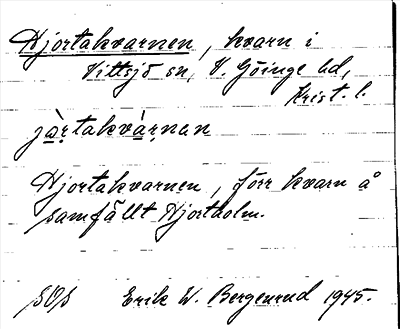 Hjortakvarnen, kvarn i
Vittsjö sn, V. Göinge hd,
Krist. l.
jàṛtakvàṛnan
Hjortakvarnen, förr kvarn å
samfällt Hjortholm.
SOS Erik W. Bergenrud 1945.